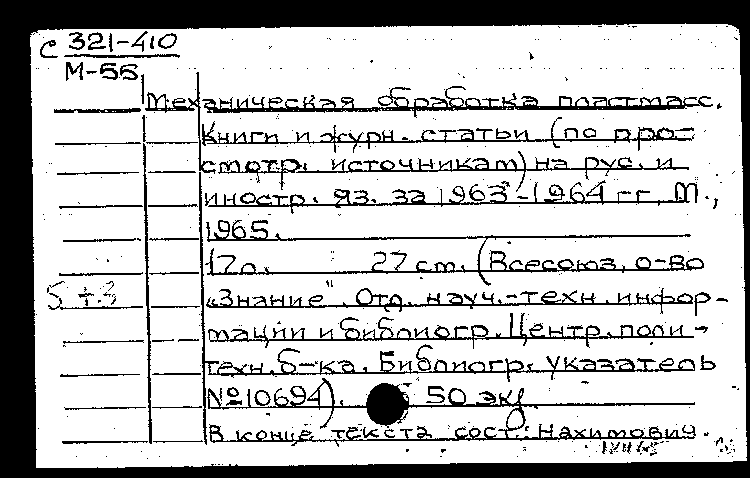 С 321-410
М-55
Механическая обработка пластмасс.
Книги и журн. статьи (по про-
смотр. источникам) на рус. и
иностр. яз. за 1963-1964 гг. М.,
1965.
17 л. 27 см. (Всесоюз. о-во
„Знание". Отд. науч.-техн. инфор-
мации и библиогр. Центр. поли-
техн. б-ка. Библиогр. указатель
№10694). 50 экз
В конце текста сост.: Нахимович.